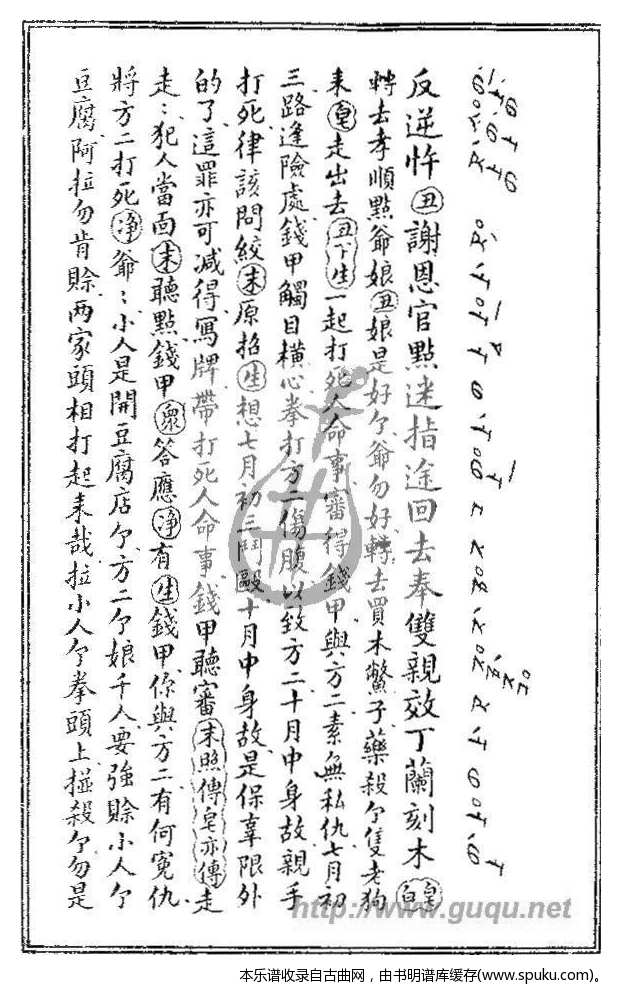 反逆忤丑謝恩官點迷指途回去奉雙親效丁蘭刻木皂白
轉去孝順點爺娘丑娘是好个爺勿好轉去買木鱉子藥殺个隻老狗
末皂走出去丑下生一起打死人命事審得錢甲與方二素無私仇七月初
三路逢險處錢甲觸目橫心拳打方二傷腹以致方二十月中身故親手
打死律該問絞末原招生想七月初三鬥毆十月中身故是保辜限外
的了這罪亦可減得寫牌帶打死人命事錢甲聽審末照傳皂亦傳走
走：犯人當面末聽點錢甲衆答應净有生錢甲你與方二有何寃仇
將方二打死净爺：小人是開豆腐店个方二个娘千人要強賒小人个
豆腐阿拉勿肯賒两家頭相打起来哉拉小人个拳頭上掽殺个勿是
http://www.guqu.net
本乐谱收录自古曲网，由书明谱库缓存(www.spuku.com)。